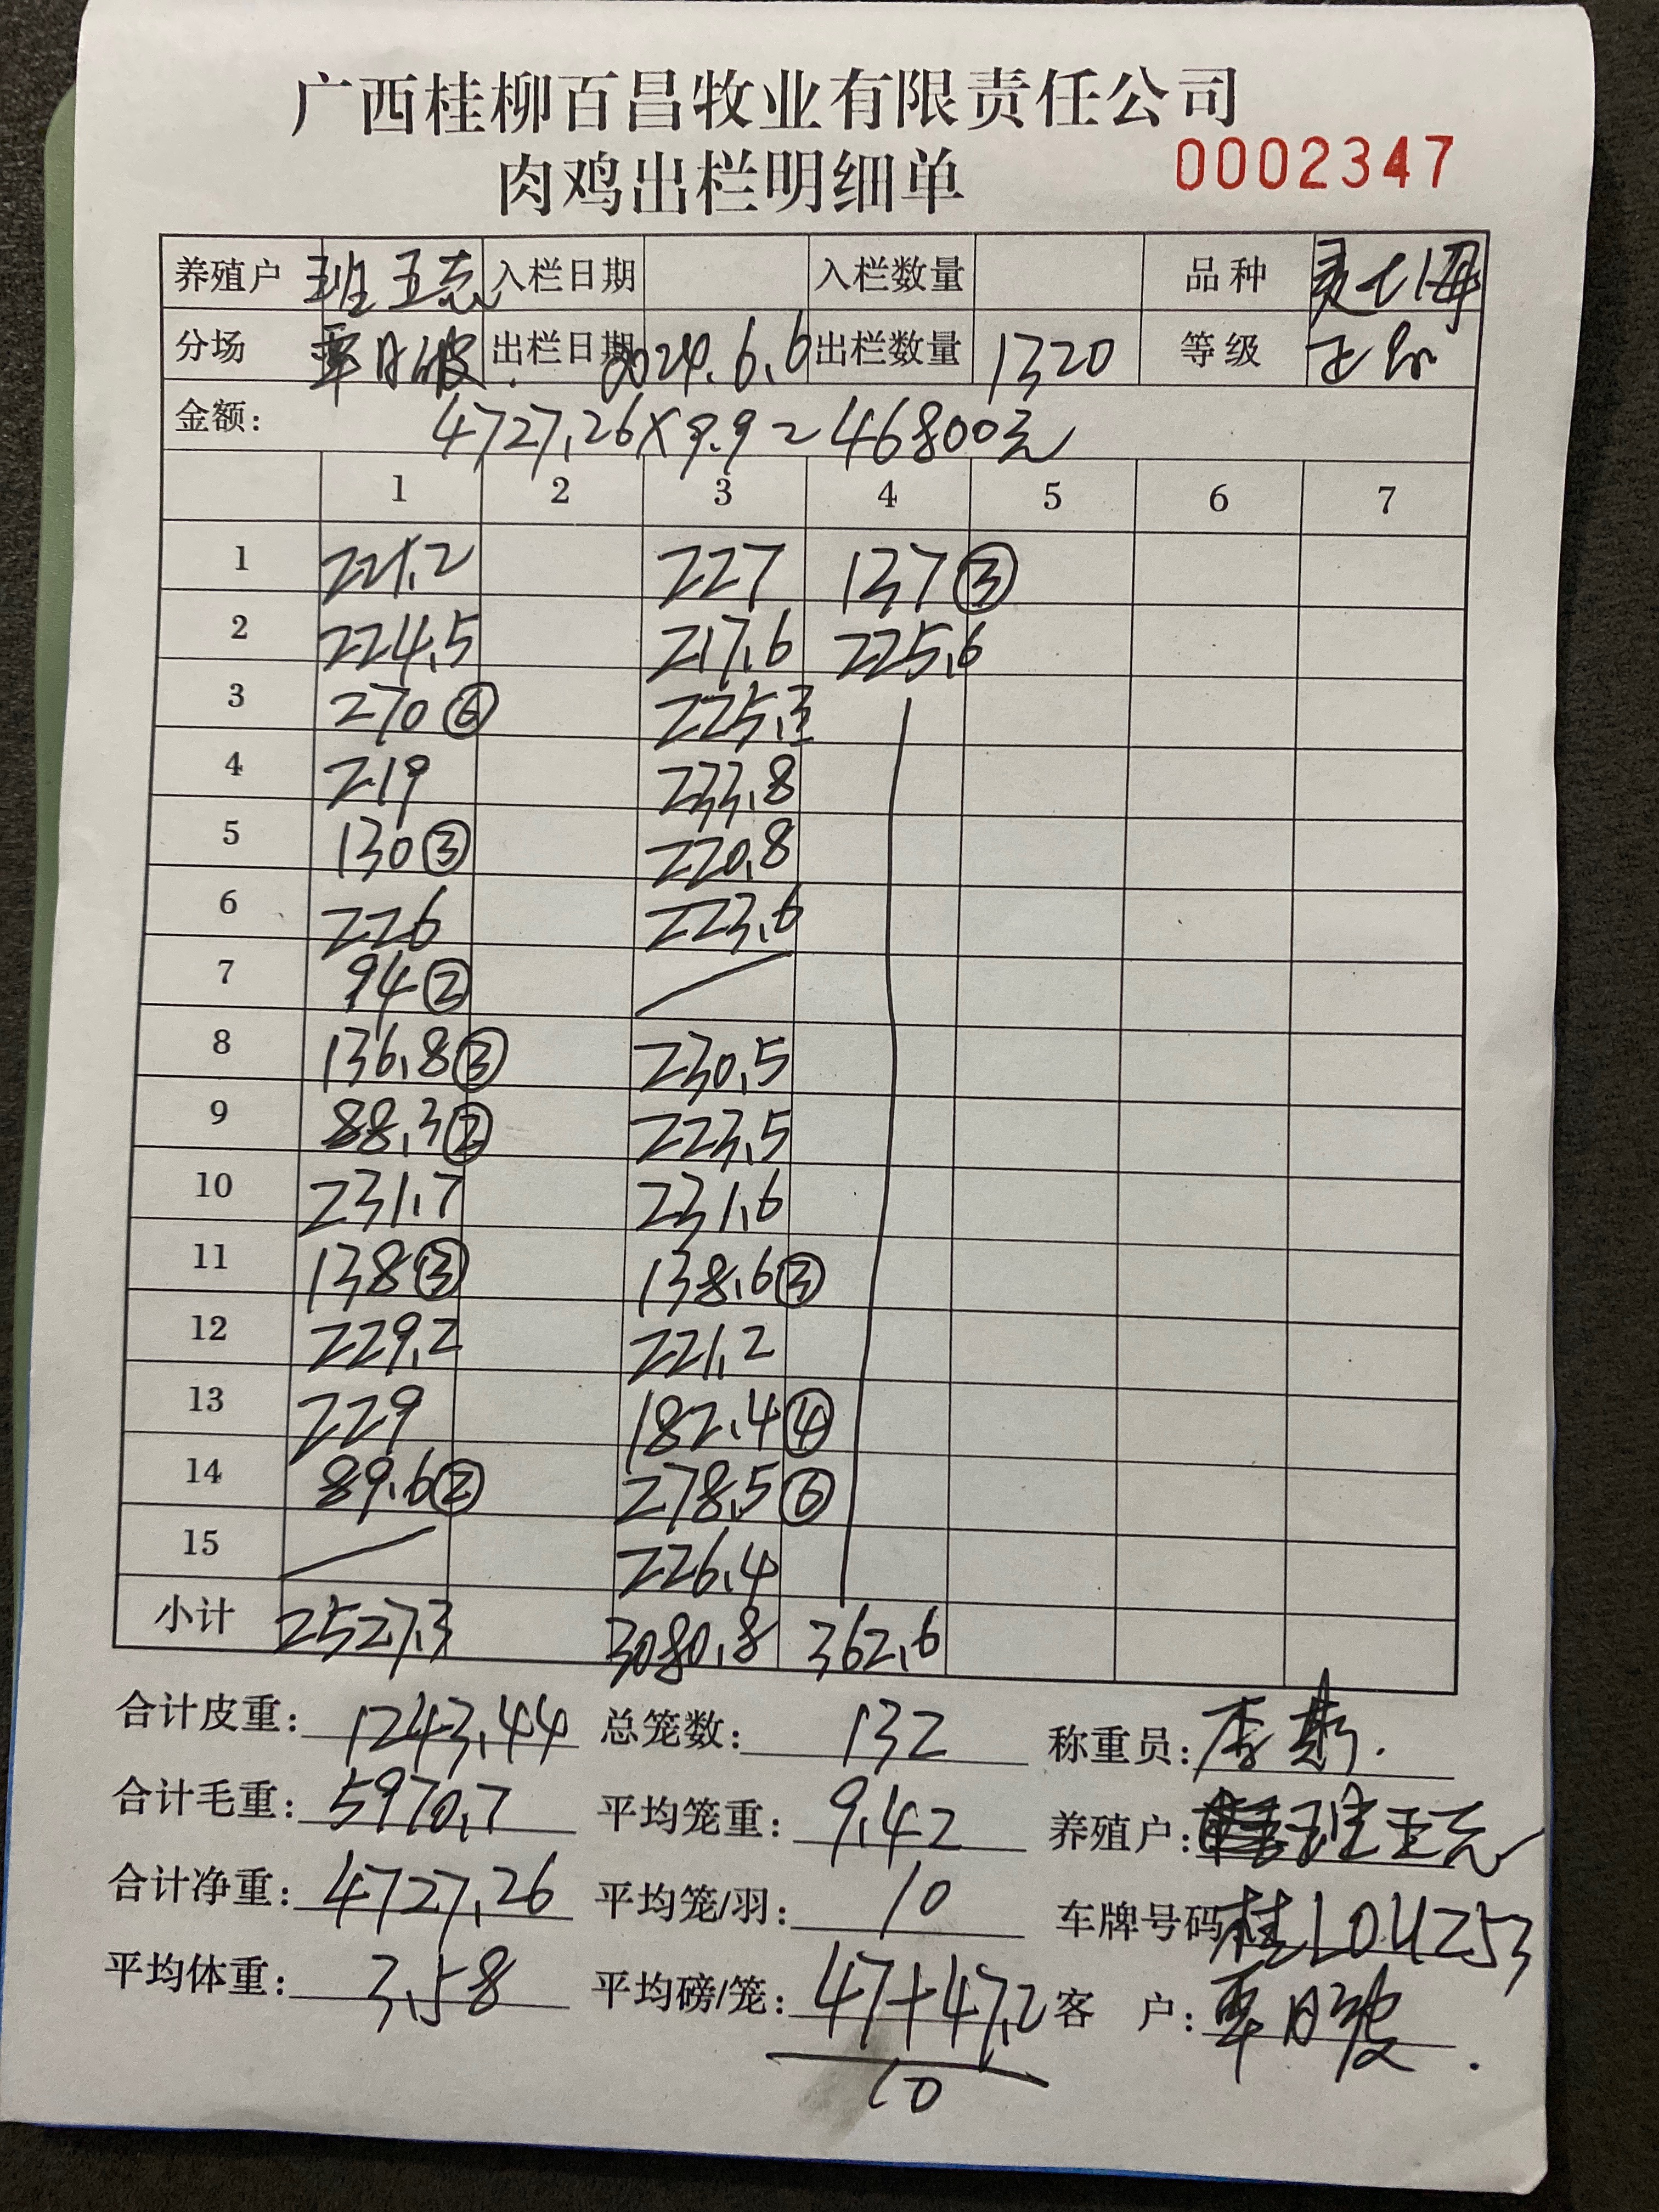 广西桂柳百昌牧业有限责任公司
肉鸡出栏明细单 0002347
养殖户 班五志 入栏日期 入栏数量 品种
分场 出栏日期 2024.6.6 出栏数量 1320 等级 正品
金额: 4727.26×9.9=46800元
1 2 3 4 5 6 7
1 221.2 227 137③
2 224.5 217.6 225.6
3 270⑥ 225.3
4 219 233.8
5 130③ 220.8
6 226 223.6
7 94②
8 136.8③ 230.5
9 88.3② 223.5
10 231.7 231.6
11 138③ 138.6③
12 229.2 221.2
13 229 182.4④
14 89.6② 278.5⑥
15 226.4
小计 2527.3 3080.8 362.6
合计皮重: 1243.44 总笼数: 132 称重员: 李
合计毛重: 5970.7 平均笼重: 9.42 养殖户: 班
合计净重: 4727.26 平均笼/羽: 10 车牌号码 桂L0U253
平均体重: 3.58 平均磅/笼: 47+47.2 客 户:
10